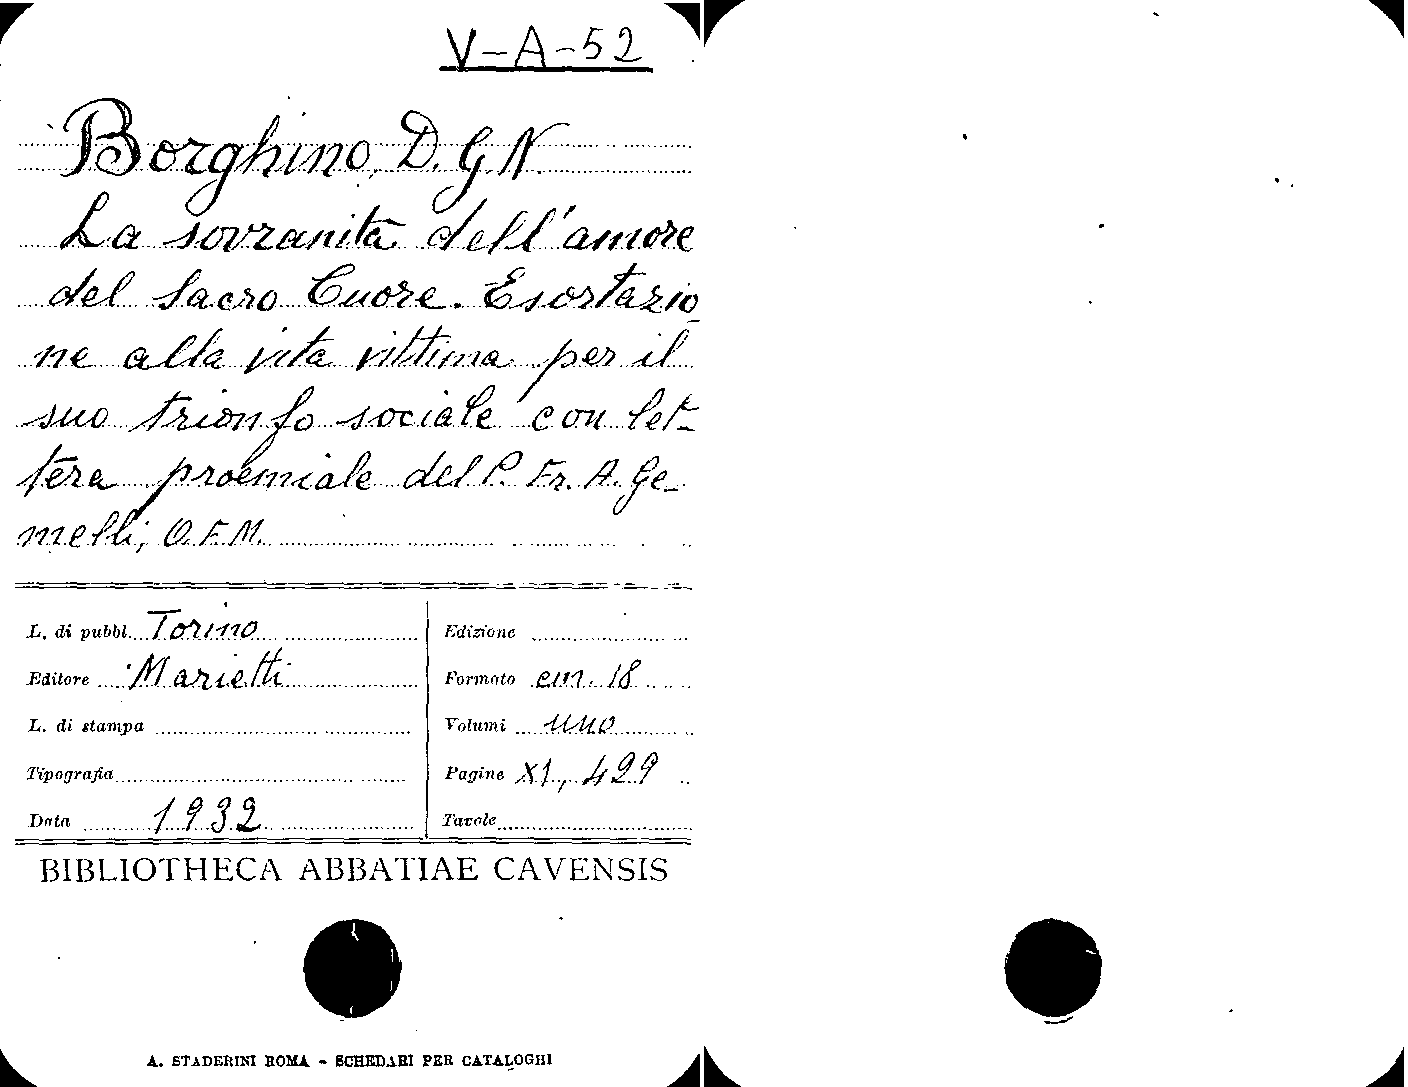 V-A-52
Borghino, D. G. N.
La sovranità dell'amore
del Sacro Cuore. Esortazio-
ne alla vita vittima per il
suo trionfo sociale con let-
tera proemiale del P. Fr. A. Ge-
melli, O.F.M.
L. di pubbl. Torino
Editore Marietti
L. di stampa
Tipografia
Data 1932
Edizione
Formato cm. 18
Volumi uno
Pagine XI, 429
Tavole
BIBLIOTHECA ABBATIAE CAVENSIS
A. STADERINI ROMA - SCHEDARI PER CATALOGHI